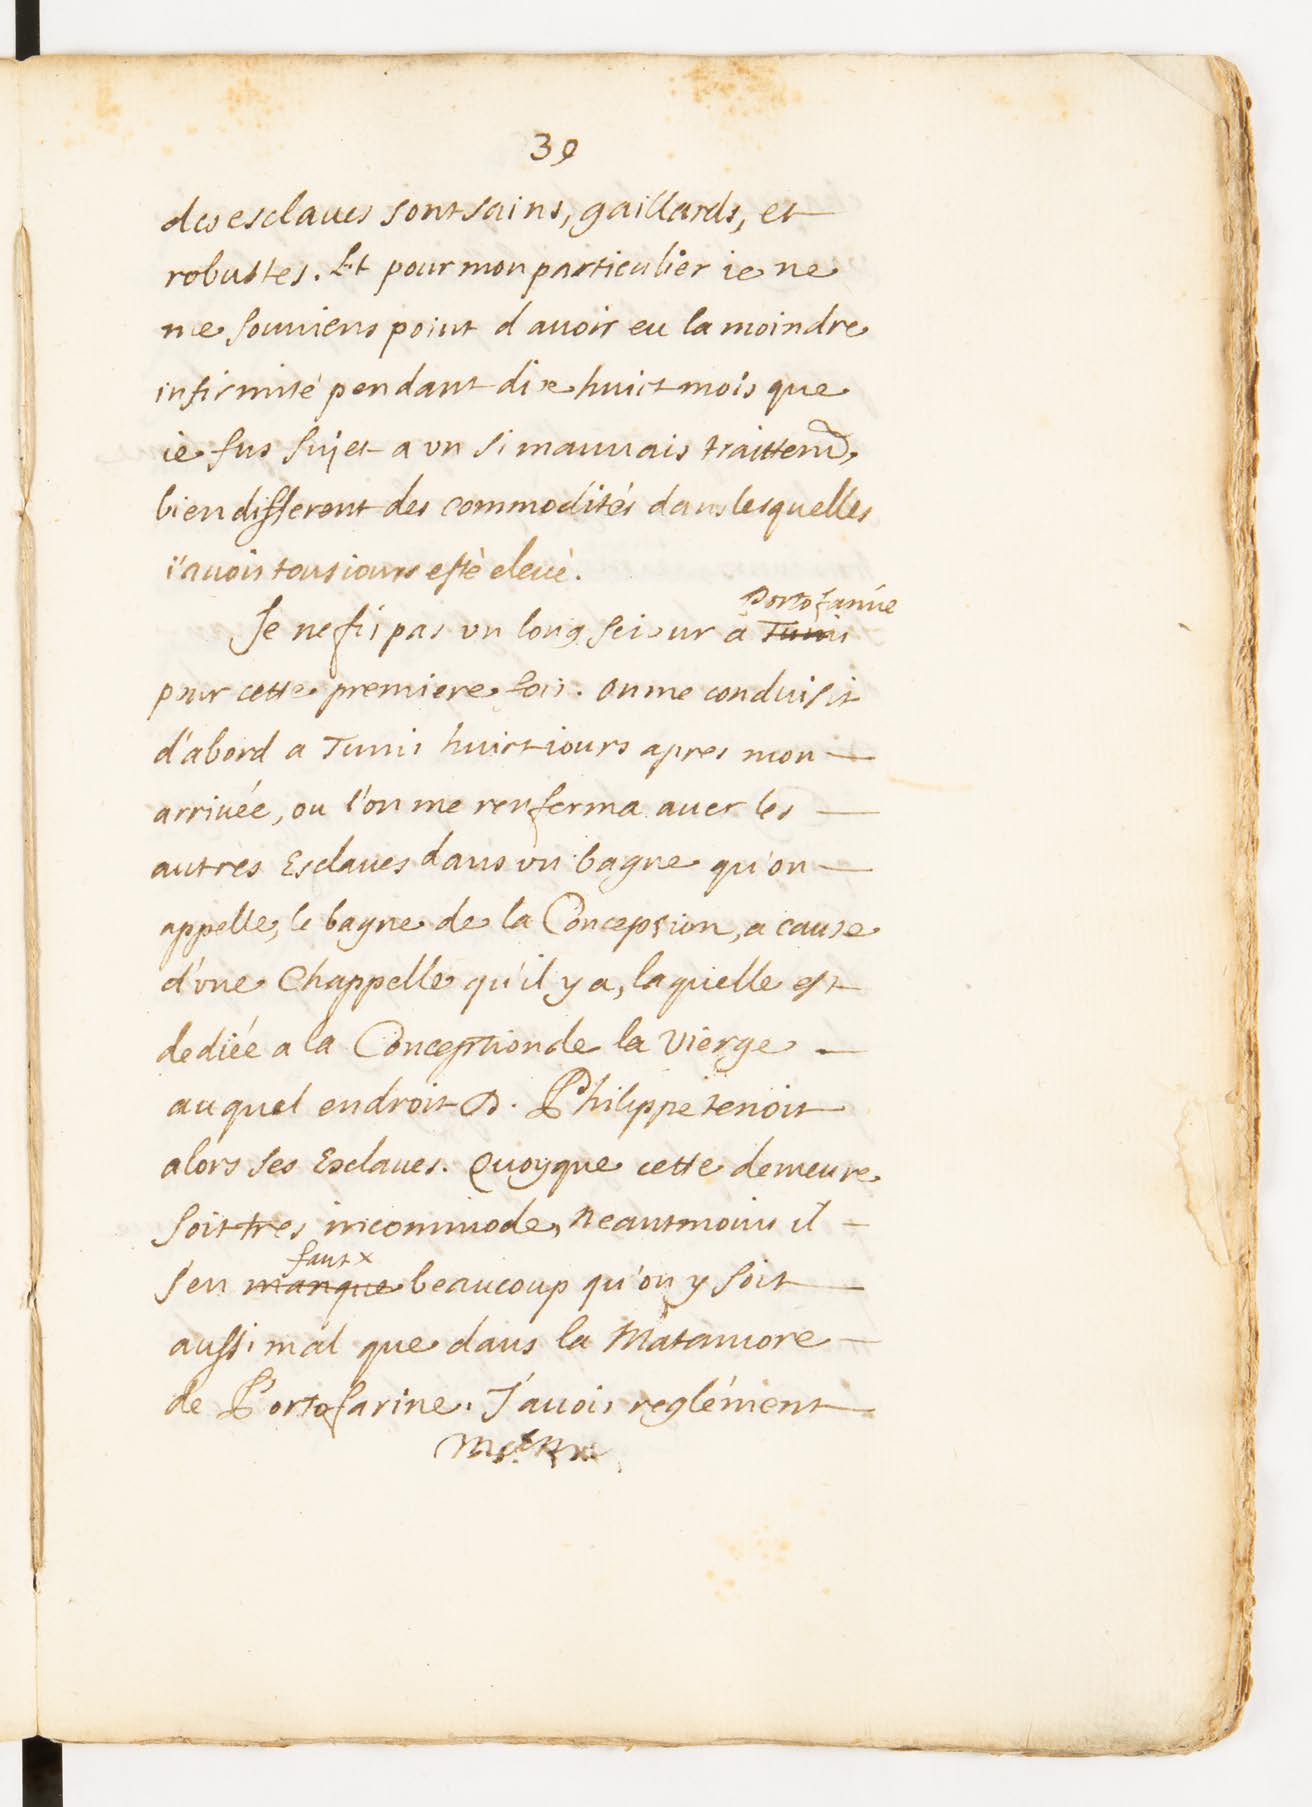 39
des esclaues sont sains, gaillards, et
robustes. Et pour mon particulier ie ne
me souuiens point d'auoir eu la moindre
infirmité pendant dix huict mois que
ie fus sujet a vn si mauuais traittem̃,
bien different des commodités dans lesquelles
i'auois tousiours esté eleué.
Portofarine
Je ne fis pas vn long seiour a Tunis
pour cette premiere fois. on me conduisit
d'abord a Tunis huict iours apres mon
arriuée, ou l'on me renferma auec les
autres Esclaues dans vn bagne qu'on
appelle, le bagne de la Conception, a cause
d'vne Chappelle qu'il y a, laquelle est
dediée a la Conception de la Vierge
auquel endroit D. Philippe tenoit
alors ses Esclaues. Quoyque cette demeure
soit tres incommode, neantmoins il
faut x
s'en manque beaucoup qu'on y soit
aussi mal que dans la Matamore
de Portofarine. J'auois reglément